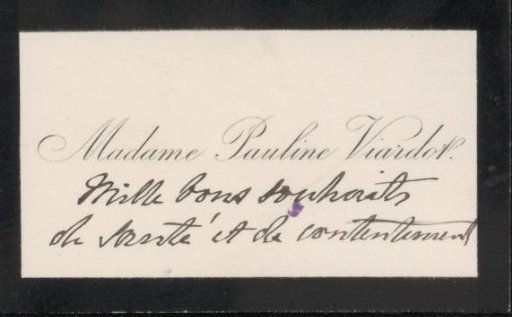 Madame Pauline Viardot.
Mille bons souhaits
de santé et de contentement